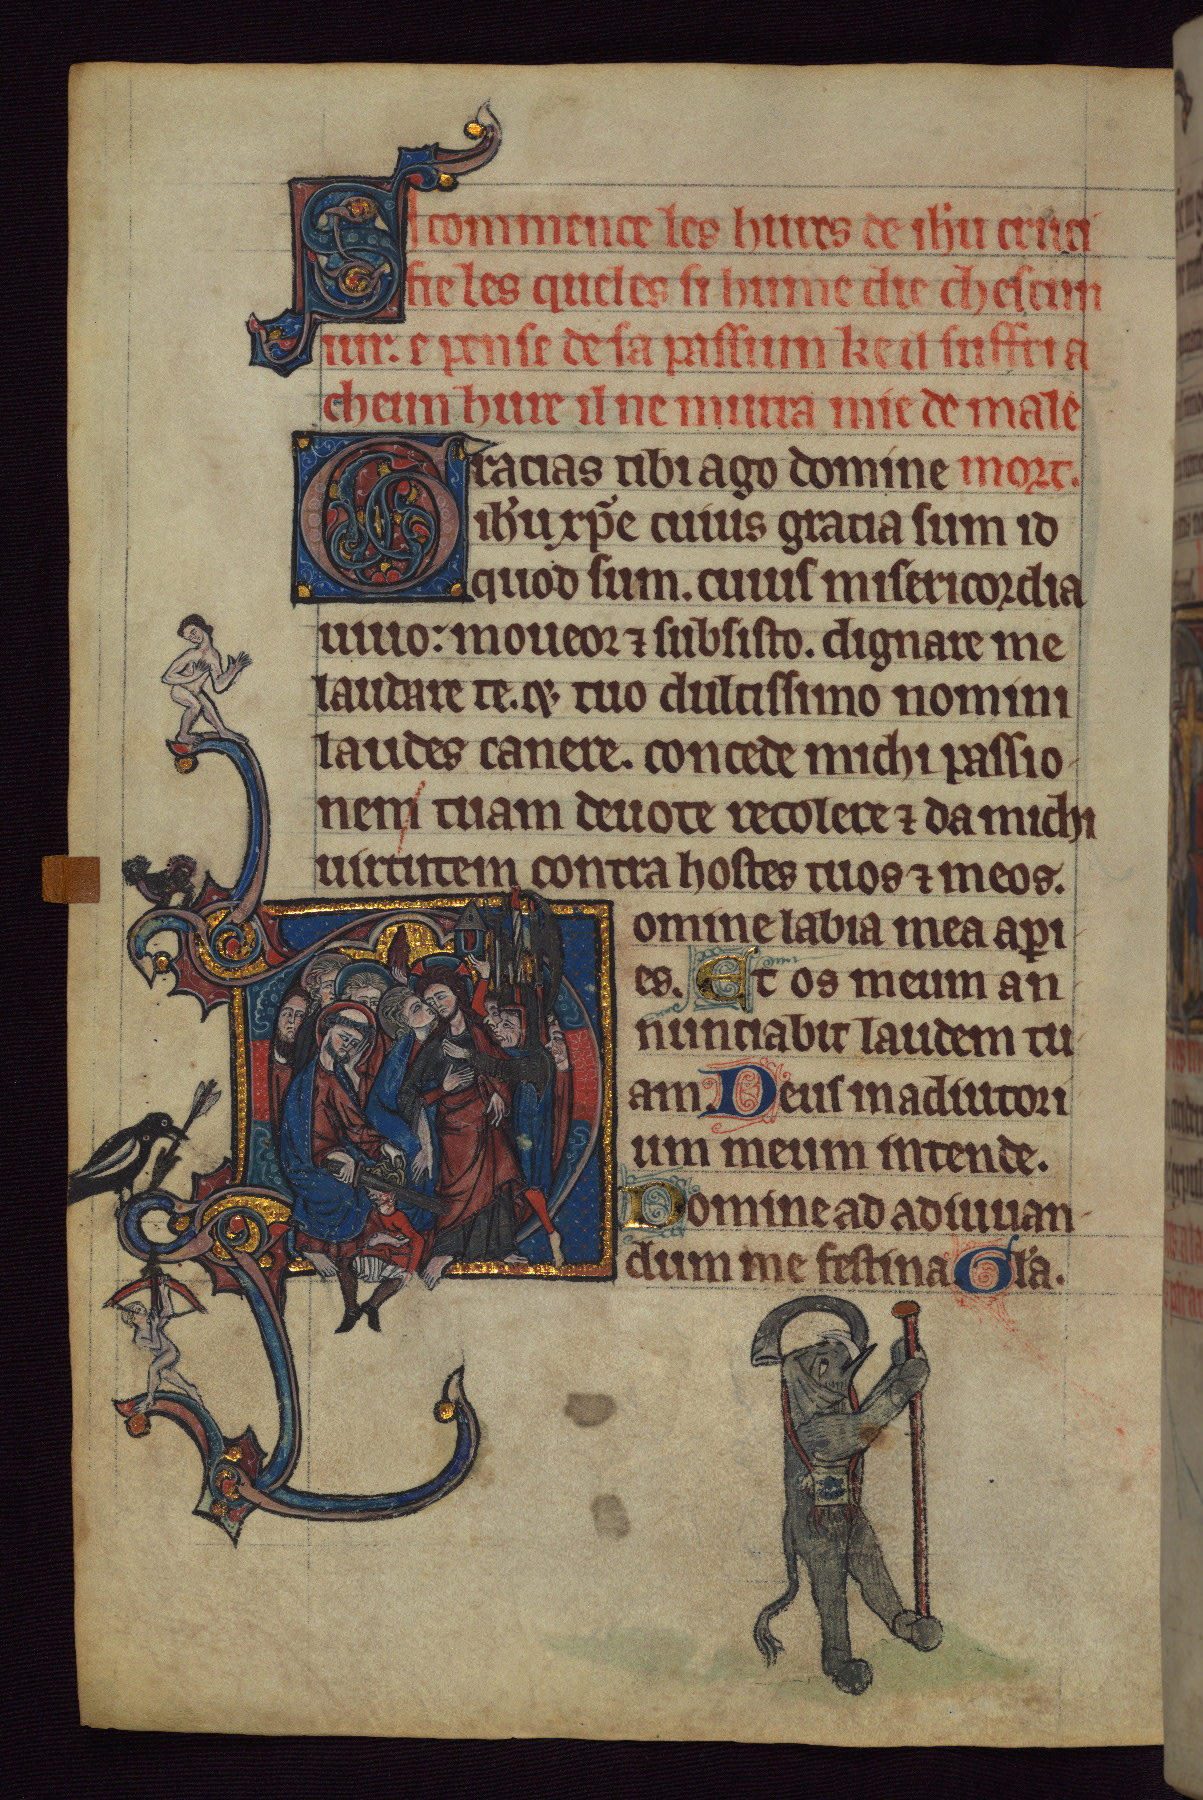 Ici commence les hures de ih'u cruci
fie les queles si hume die chescun
iur. e pense de sa passiun ke il suffri a
cheun hure il ne murra mie de male
Gracias tibi ago domine mort.
ih'u xp̄e cuius gratia sum id
quod sum. cuius misericordia
uiuo: moueor ⁊ subsisto. dignare me
laudare te. ⁊ tuo dulcissimo nomini
laudes canere. concede michi passio
nem tuam deuote recolere ⁊ da michi
uirtutem contra hostes tuos ⁊ meos.
Domine labia mea aperi
es. Et os meum an
nunciabit laudem tu
am Deus in adiutori
um meum intende.
Domine ad adiuuan
dum me festina Gl'a.